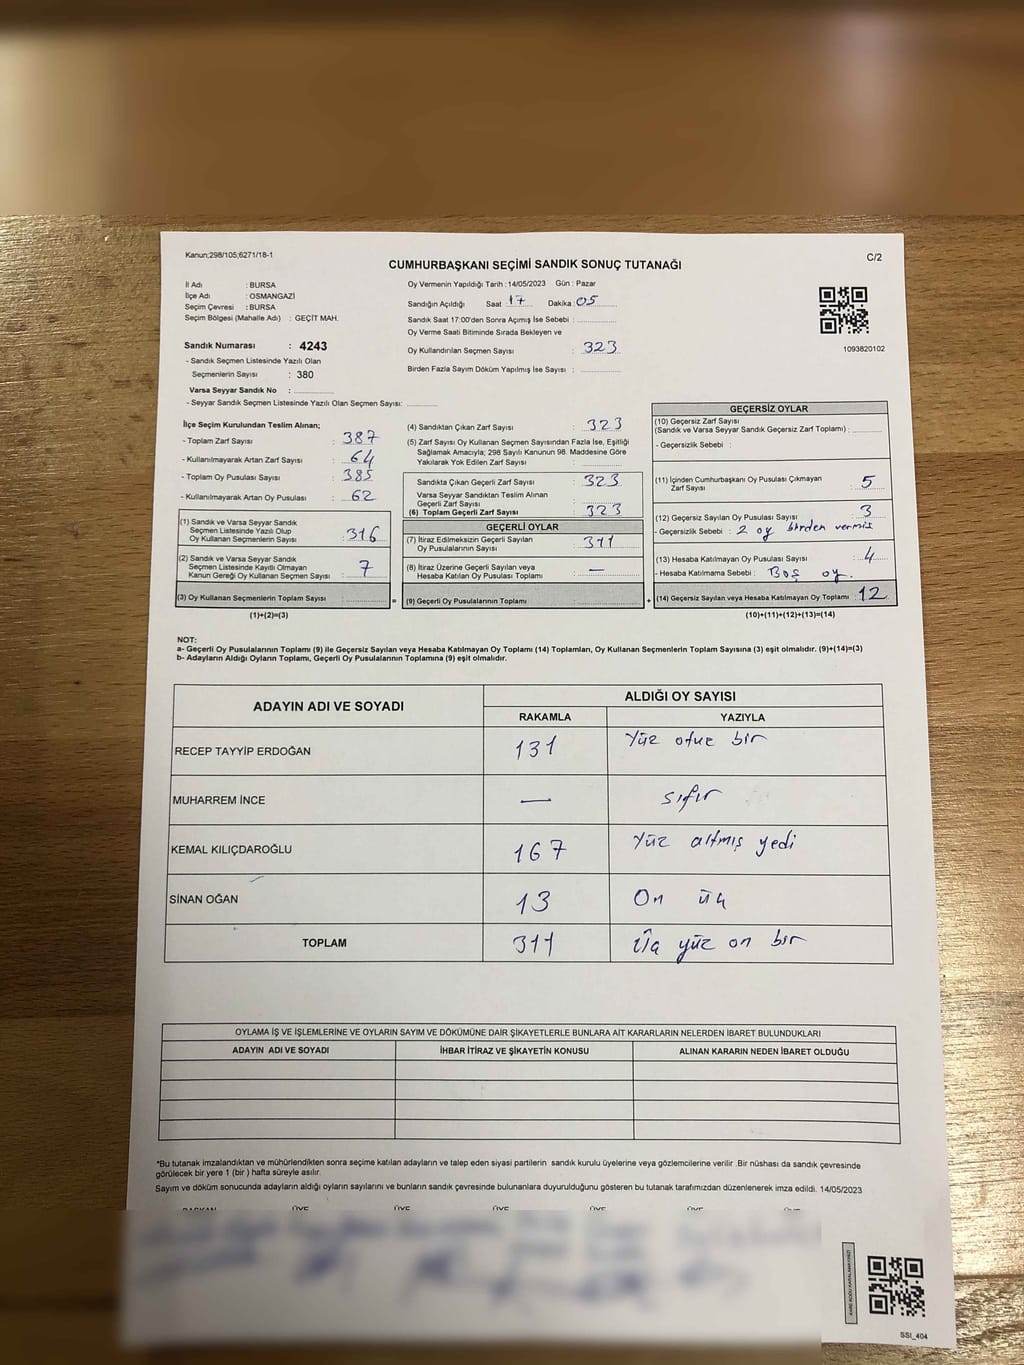 Kanun;298/105;6271/18-1
C/2
CUMHURBAŞKANI SEÇİMİ SANDIK SONUÇ TUTANAĞI
İl Adı : BURSA
İlçe Adı : OSMANGAZİ
Seçim Çevresi : BURSA
Seçim Bölgesi (Mahalle Adı) : GEÇİT MAH.
Sandık Numarası : 4243
- Sandık Seçmen Listesinde Yazılı Olan
Seçmenlerin Sayısı : 380
Varsa Seyyar Sandık No :
- Seyyar Sandık Seçmen Listesinde Yazılı Olan Seçmen Sayısı:
Oy Vermenin Yapıldığı Tarih : 14/05/2023 Gün : Pazar
Sandığın Açıldığı Saat 17 Dakika : 05
Sandık Saat 17:00'den Sonra Açımış İse Sebebi :
Oy Verme Saati Bitiminde Sırada Bekleyen ve
Oy Kullandırılan Seçmen Sayısı : 323
Birden Fazla Sayım Döküm Yapılmış İse Sayısı :
1093820102
İlçe Seçim Kurulundan Teslim Alınan;
- Toplam Zarf Sayısı : 387
- Kullanılmayarak Artan Zarf Sayısı : 64
- Toplam Oy Pusulası Sayısı : 385
- Kullanılmayarak Artan Oy Pusulası : 62
(1) Sandık ve Varsa Seyyar Sandık
Seçmen Listesinde Yazılı Olup
Oy Kullanan Seçmenlerin Sayısı : 316
(2) Sandık ve Varsa Seyyar Sandık
Seçmen Listesinde Kayıtlı Olmayan
Kanun Gereği Oy Kullanan Seçmen Sayısı : 7
(3) Oy Kullanan Seçmenlerin Toplam Sayısı :
(1)+(2)=(3)
(4) Sandıktan Çıkan Zarf Sayısı : 323
(5) Zarf Sayısı Oy Kullanan Seçmen Sayısından Fazla İse, Eşitliği
Sağlamak Amacıyla; 298 Sayılı Kanunun 98. Maddesine Göre
Yakılarak Yok Edilen Zarf Sayısı :
Sandıkta Çıkan Geçerli Zarf Sayısı : 323
Varsa Seyyar Sandıktan Teslim Alınan
Geçerli Zarf Sayısı :
(6) Toplam Geçerli Zarf Sayısı : 323
GEÇERLİ OYLAR
(7) İtiraz Edilmeksizin Geçerli Sayılan
Oy Pusulalarının Sayısı : 311
(8) İtiraz Üzerine Geçerli Sayılan veya
Hesaba Katılan Oy Pusulası Toplamı : —
= (9) Geçerli Oy Pusulalarının Toplamı :
GEÇERSİZ OYLAR
(10) Geçersiz Zarf Sayısı
(Sandık ve Varsa Seyyar Sandık Geçersiz Zarf Toplamı) :
- Geçersizlik Sebebi :
(11) İçinden Cumhurbaşkanı Oy Pusulası Çıkmayan
Zarf Sayısı : 5
(12) Geçersiz Sayılan Oy Pusulası Sayısı : 3
- Geçersizlik Sebebi : 2 oy birden vermiş
(13) Hesaba Katılmayan Oy Pusulası Sayısı : 4
- Hesaba Katılmama Sebebi : Boş oy.
+ (14) Geçersiz Sayılan veya Hesaba Katılmayan Oy Toplamı : 12
(10)+(11)+(12)+(13)=(14)
NOT:
a- Geçerli Oy Pusulalarının Toplamı (9) ile Geçersiz Sayılan veya Hesaba Katılmayan Oy Toplamı (14) Toplamları, Oy Kullanan Seçmenlerin Toplam Sayısına (3) eşit olmalıdır. (9)+(14)=(3)
b- Adayların Aldığı Oyların Toplamı, Geçerli Oy Pusulalarının Toplamına (9) eşit olmalıdır.
ADAYIN ADI VE SOYADI ALDIĞI OY SAYISI
RAKAMLA YAZIYLA
RECEP TAYYİP ERDOĞAN 131 Yüz otuz bir
MUHARREM İNCE — sıfır
KEMAL KILIÇDAROĞLU 167 Yüz altmış yedi
SİNAN OĞAN 13 On üç
TOPLAM 311 Üç yüz on bir
OYLAMA İŞ VE İŞLEMLERİNE VE OYLARIN SAYIM VE DÖKÜMÜNE DAİR ŞİKAYETLERLE BUNLARA AİT KARARLARIN NELERDEN İBARET BULUNDUKLARI
ADAYIN ADI VE SOYADI İHBAR İTİRAZ VE ŞİKAYETİN KONUSU ALINAN KARARIN NEDEN İBARET OLDUĞU
*Bu tutanak imzalandıktan ve mühürlendikten sonra seçime katılan adayların ve talep eden siyasi partilerin sandık kurulu üyelerine veya gözlemcilerine verilir .Bir nüshası da sandık çevresinde
görülecek bir yere 1 (bir ) hafta süreyle asılır.
Sayım ve döküm sonucunda adayların aldığı oyların sayılarını ve bunların sandık çevresinde bulunanlara duyurulduğunu gösteren bu tutanak tarafımızdan düzenlenerek imza edildi. 14/05/2023
BAŞKAN ÜYE ÜYE ÜYE ÜYE ÜYE ÜYE
KARE KODU KARALAMAYINIZ!
SSI_404